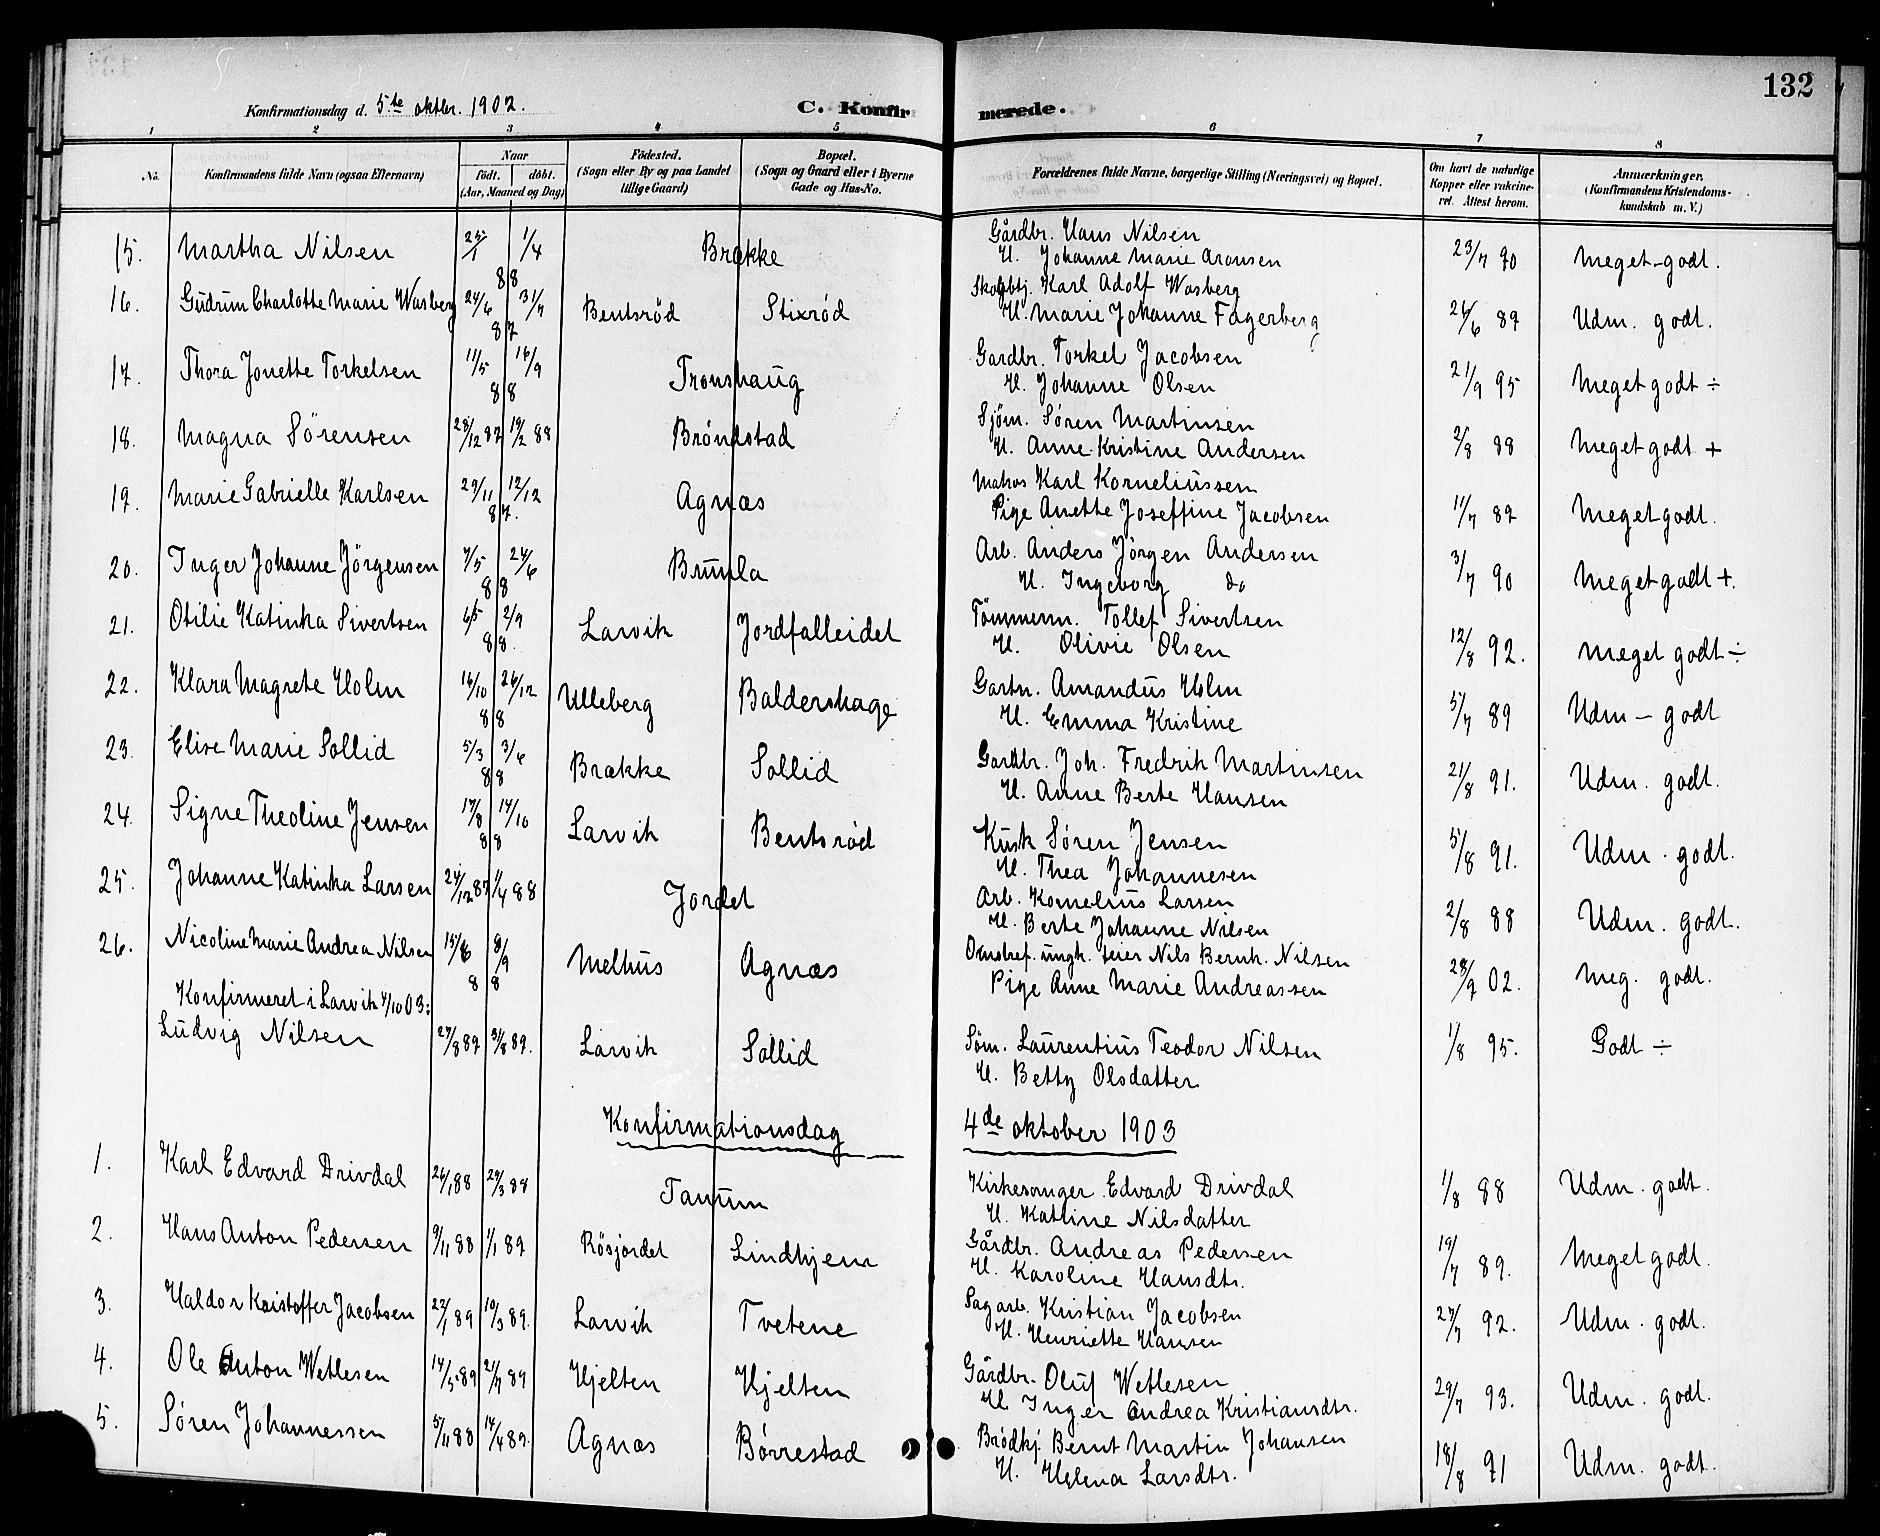 132
Konfirmationsdag d. 5te oktbr. 1902. C. Konfirmerede.
1 2 3 4 5 6 7 8
No. Konfirmandens fulde Navn (ogsaa Efternavn) Naar født. døbt. (Aar, Maaned og Dag) Fødested. (Sogn eller By og paa Landet tillige Gaard) Bopæl. (Sogn og Gaard eller i Byerne Gade og Hus-No. Forældrenes fulde Navne, borgerlige Stilling (Næringsvei) og Bopæl. Om havt de naturlige Kopper eller vakcineret. Attest herom. Anmærkninger. (Konfirmandens Kristendomskundskab m. V.)
15. Martha Nilsen 25/1 1/4 88 Brække Gårdbr. Hans Nilsen 23/7 90 Meget-godt.
H. Johanne Marie Aronsen
16. Gudrun Charlotte Marie Wasberg 24/6 31/7 87 Bentsrød Stixrød Skogbtj. Karl Adolf Wasberg 24/6 89 Udm. godt.
H. Marie Johanne Fagerberg
17. Thora Jonette Torkelsen 11/5 16/9 88 Tronshaug Gardbr. Torkel Jacobsen 21/9 95 Meget godt ÷
H. Johanne Olsen
18. Magna Sörensen 28/12 87 19/2 88 Bröndstad Sjöm. Sören Martinsen 2/8 88 Meget godt +
H. Anne Kristine Andersen
19. Marie Gabrielle Karlsen 29/11 12/12 87. Agnæs Matros Karl Korneliussen 11/7 89 Meget godt.
Pige Anette Joseffine Jacobsen
20. Inger Johanne Jörgensen 7/5 24/6 88 Brunla Arb. Anders Jörgen Andersen 3/7 90 Meget godt +.
H. Ingeborg do
21. Otilie Katinka Sivertsen 6/5 2/9 88. Larvik Jordfalleidet Tömmerm. Tollef Sivertsen 12/8 92. Meget godt ÷
H. Olivie Olsen
22. Klara Magrete Holm 16/10 26/12 88 Ulleberg Baldershage Gartn. Amandus Holm 5/7 89 Udm - godt
H. Emma Kristine
23. Elise Marie Sollid 5/3 3/6 88 Brække Sollid Gardbr. Joh. Fredrik Martinsen 21/8 91. Udm. godt.
H. Anne Berte Hansen
24. Signe Theoline Jensen 17/8 14/10 88 Larvik Bentsrød Kusk Søren Jensen 5/8 91. Udm. godt.
H. Thea Johannesen
25. Johanne Katinka Larsen 24/12 87 1/4 88 Jordet Arb. Kornelius Larsen 2/8 88 Udm. godt.
H. Berte Johanne Nilsen
26. Nicoline Marie Andrea Nilsen 15/6 8/9 88 Melhus Agnæs ungk. feier Nils Bernh. Nilsen 28/9 02. Meg. godt.
Pige Anne Marie Andreassen
Konfirmeret i Larvik 4/10 03:
Ludvig Nilsen 27/8 89 31/8 89. Larvik Sollid Søm. Laurentius Teodor Nilsen 1/8 95. Godt ÷
H. Betty Olsdatter
Konfirmationsdag 4de oktober 1903
1. Karl Edvard Drivdal 26/1 88 29/3 88 Tanum Kirkesanger Edvard Drivdal 1/8 88 Udm. godt.
H. Katrine Nilsdatter
2. Hans Anton Pedersen 9/11 88 1/1 89 Rösjordet Lindhjem Gårdbr. Andreas Pedersen 19/7 89. Meget godt.
H. Karoline Hansdtr.
3. Haldor Kristoffer Jacobsen 22/1 89 10/3 89. Larvik Tvetene Sagarb. Kristian Jacobsen 27/7 92. Udm. godt.
H. Henriette Hansen
4. Ole Anton Wetlesen 14/5 89 21/7 89 Hjelten Hjelten Gårdbr. Oluf Wetlesen 29/7 93. Udm. godt.
H. Inger Andrea Kristiansdtr.
5. Søren Johannessen 5/11 88 14/4 89. Agnæs Børrestad Brødkj. Bernt Martin Johansen 18/8 91 Udm. godt.
H. Helena Larsdtr.